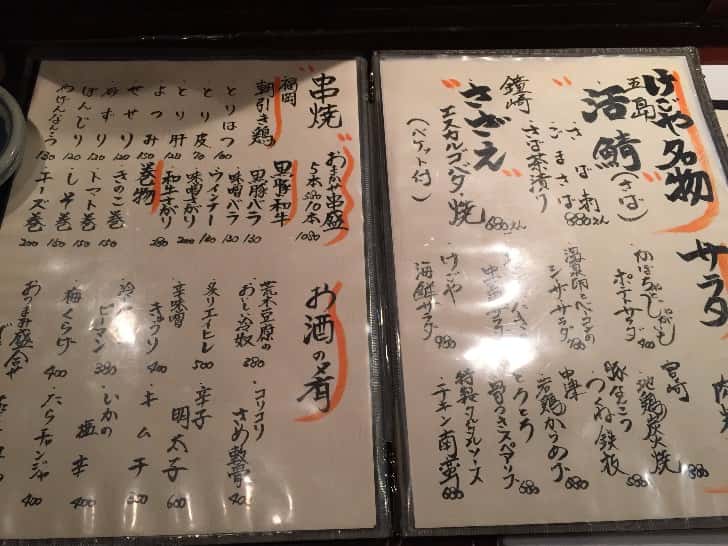 けごや名物
五島
活鯖(さば)
さば刺
ごまさば 880えん
さば茶漬け
鐘崎
さざえ
エスカルゴバター焼 680えん
(バケット付)
サラダ
ポテトサラダ 400
温玉とベーコンの
シーザーサラダ
けごや
海鮮サラダ 980
宮崎
地鶏炭火焼 880
豚生こう
つくね鉄板 680
中津
若鶏からあげ
とろとろ
骨つきスペアリブ
特製タルタルソース
チキン南蛮 680
串焼
おまかせ串盛
5本580
10本1080
福岡
朝引き鶏
・とりはつ 100
・とり皮 70
・とり肝 120
・よつみ 150
・せせり 120
・ずり 120
・ぼんじり 120
・やげんなんこつ 130
黒豚・和牛
・黒豚バラ 150
・味噌バラ 150
・ウインナー 120
・味噌さがり 200
・和牛さがり 280
巻物
・きのこ巻 150
・トマト巻 150
・しそ巻 150
・チーズ巻 200
お酒の肴
荒木豆腐の
おぼろ冷奴 380
・炙りエイヒレ 500
・辛味噌
きゅうり 400
・冷やし
ピーマン 380
・梅くらげ 400
・コリコリ
さめ軟骨 400
・辛子
明太子 600
・キムチ
・いかの
塩辛 400
・たらチャンジャ 400